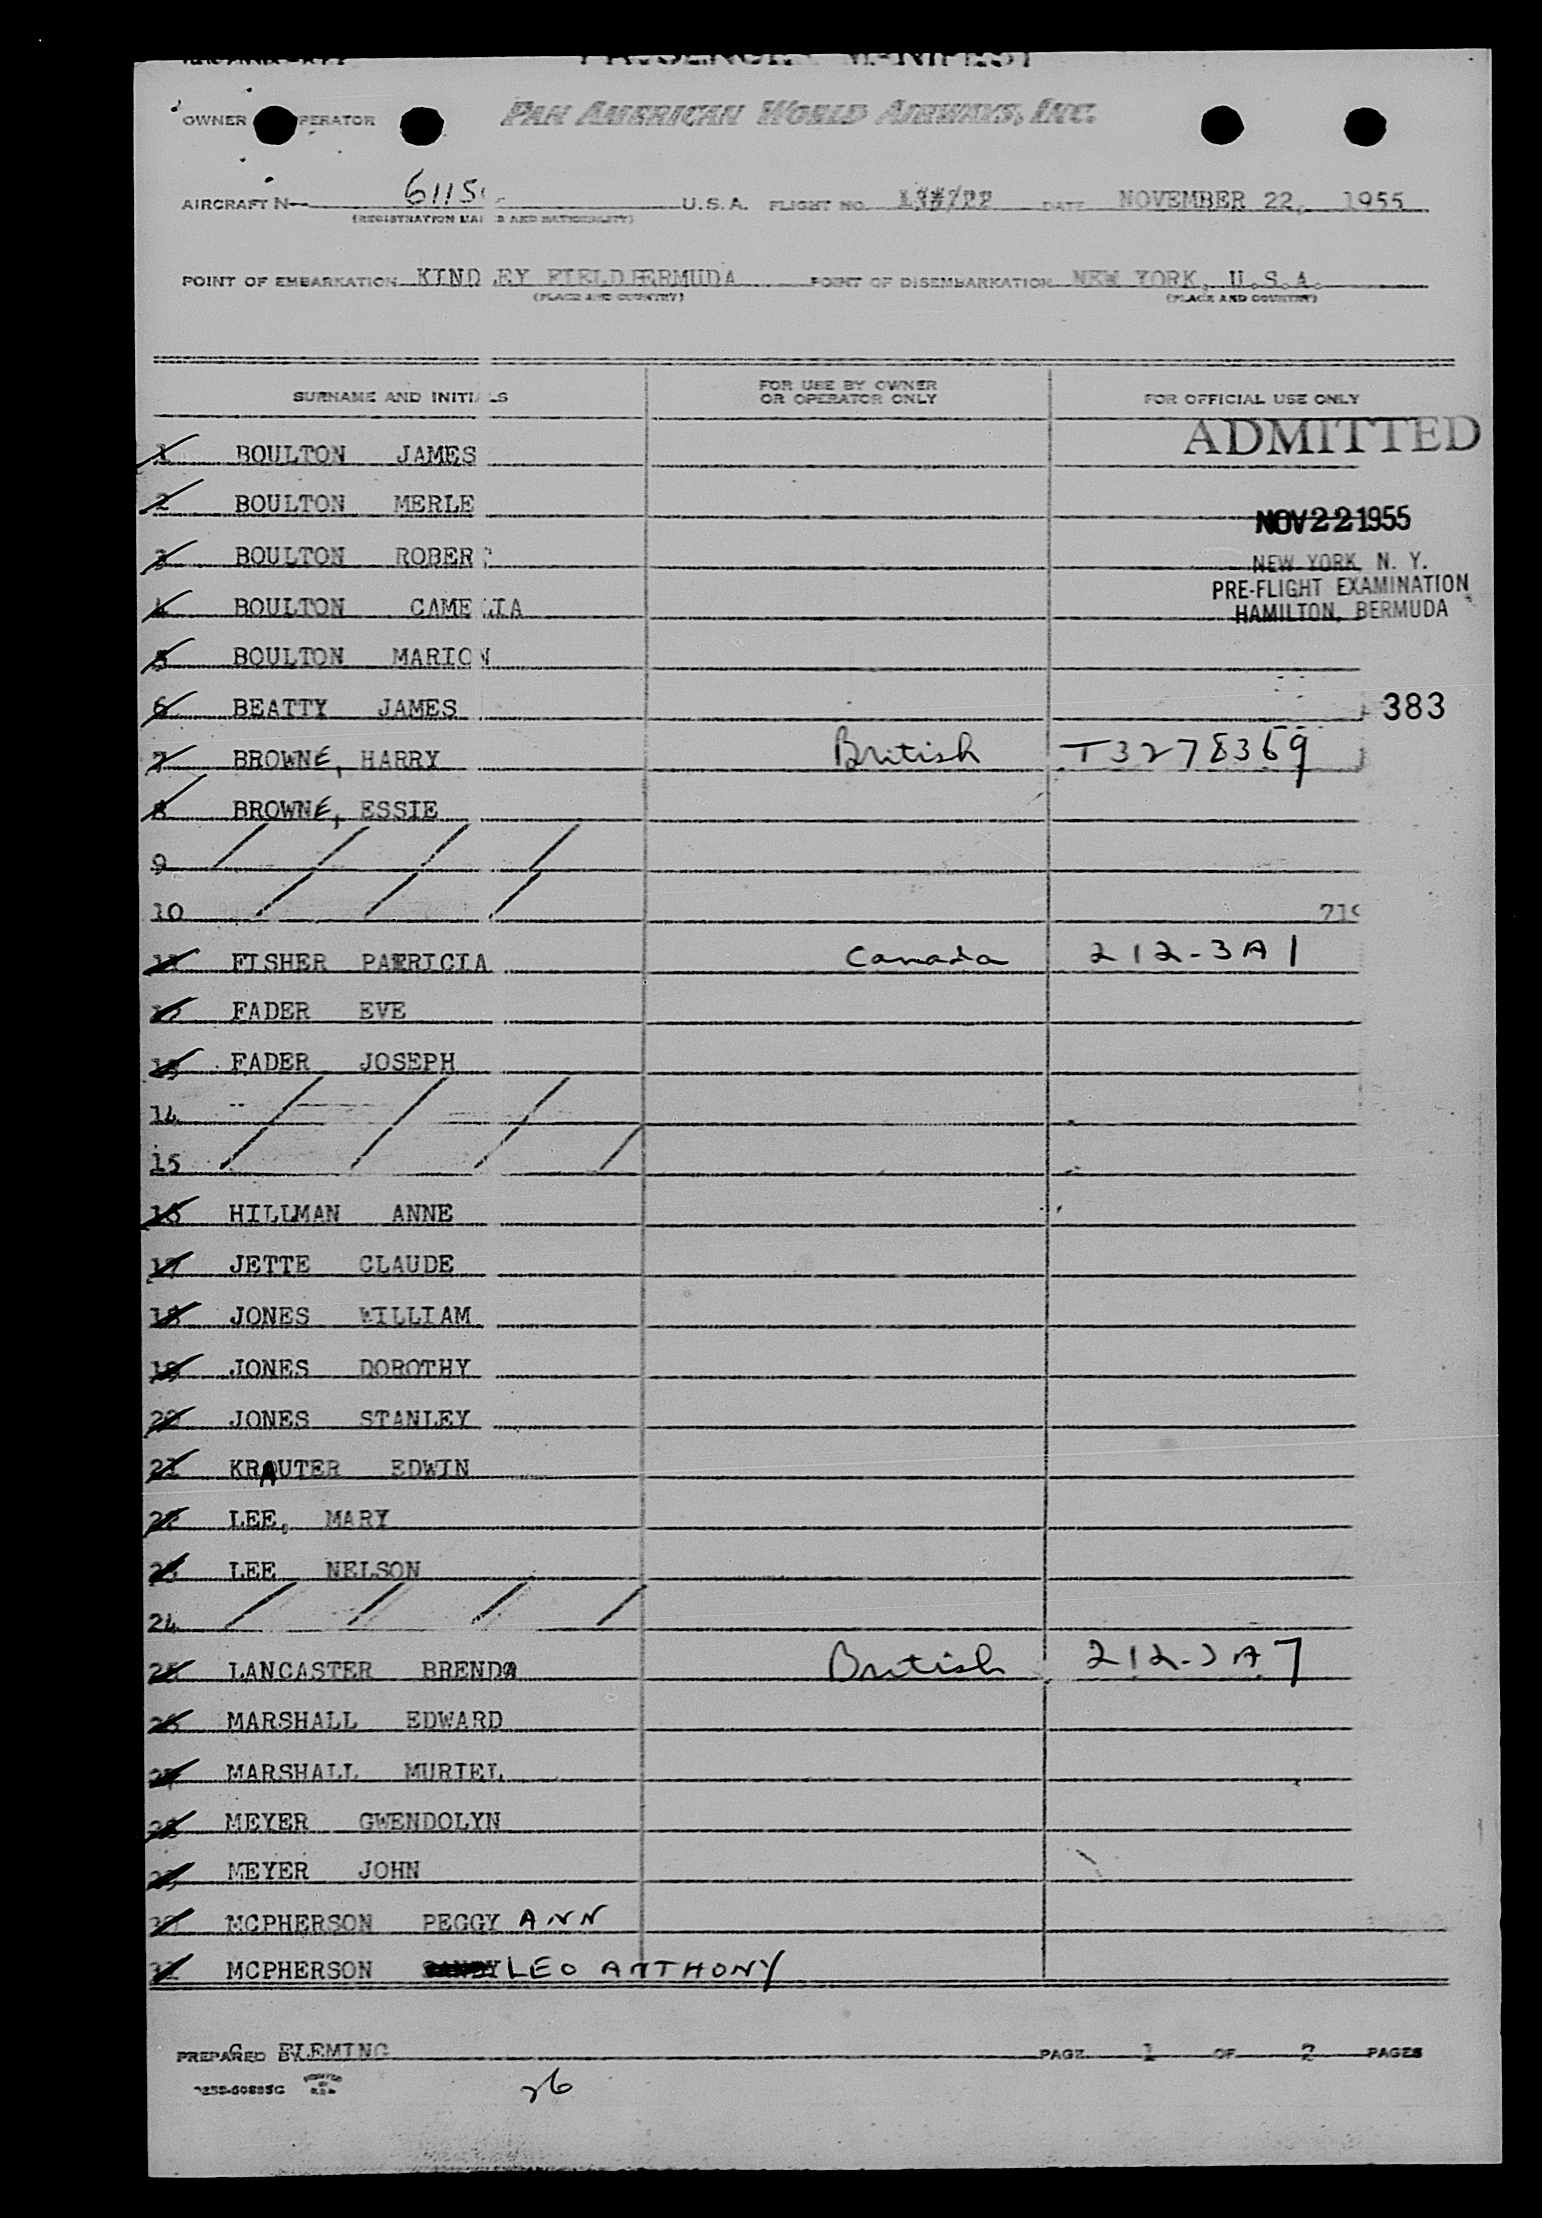 PASSENGER MANIFEST
OWNER OPERATOR PAN AMERICAN WORLD AIRWAYS, INC.
AIRCRAFT N 6115 U.S.A. FLIGHT NO. DATE NOVEMBER 22, 1955
(REGISTRATION MARKS AND NATIONALITY)
POINT OF EMBARKATION KINDLEY FIELD BERMUDA POINT OF DISEMBARKATION NEW YORK, U.S.A.
(PLACE AND COUNTRY) (PLACE AND COUNTRY)
SURNAME AND INITIALS FOR USE BY OWNER OR OPERATOR ONLY FOR OFFICIAL USE ONLY
ADMITTED
1 BOULTON JAMES
2 BOULTON MERLE
NOV 22 1955
3 BOULTON ROBERT
NEW YORK, N. Y.
PRE-FLIGHT EXAMINATION
4 BOULTON CAMELIA
HAMILTON, BERMUDA
5 BOULTON MARION
6 BEATTY JAMES 383
7 BROWNE, HARRY British T3278369
8 BROWNE, ESSIE
9
10 719
11 FISHER PATRICIA Canada 212-3A1
12 FADER EVE
13 FADER JOSEPH
14
15
16 HILLMAN ANNE
17 JETTE CLAUDE
18 JONES WILLIAM
19 JONES DOROTHY
20 JONES STANLEY
21 KRAUTER EDWIN
22 LEE, MARY
23 LEE NELSON
24
25 LANCASTER BRENDA British 212-3A7
26 MARSHALL EDWARD
27 MARSHALL MURIEL
28 MEYER GWENDOLYN
29 MEYER JOHN
30 MCPHERSON PEGGY ANN
31 MCPHERSON LEO ANTHONY
PREPARED BY G. FLEMING PAGE 1 OF 2 PAGES
26